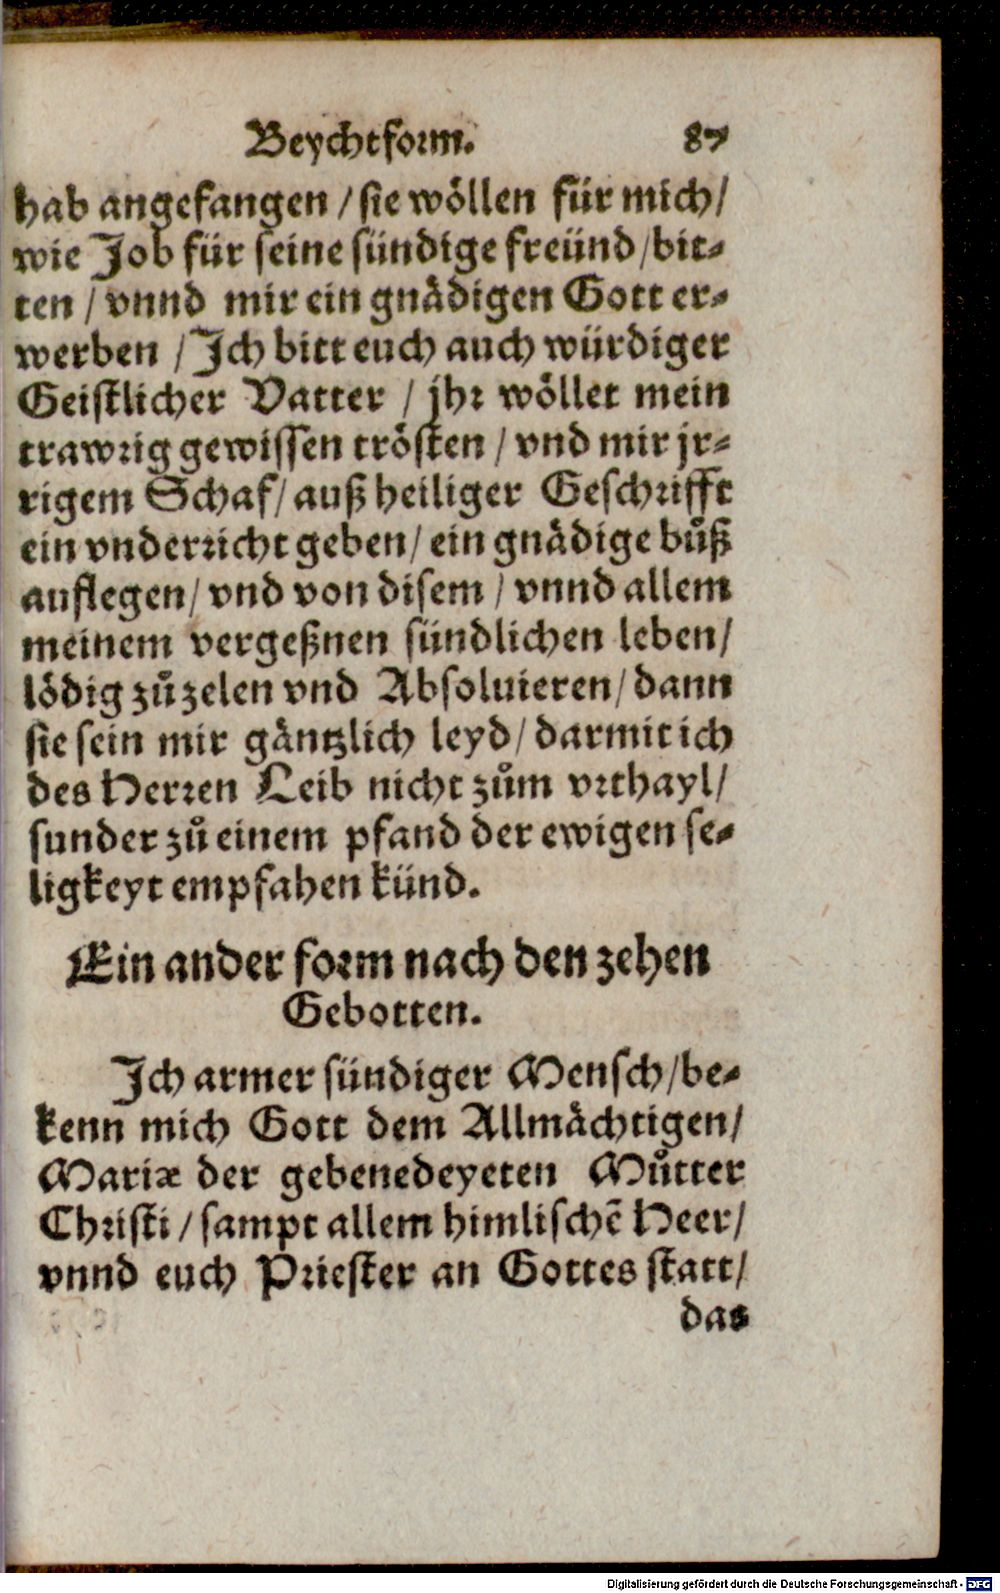 Beychtform. 87
hab angefangen / sie wöllen für mich /
wie Job für seine sündige freünd / bit-
ten / vnnd mir ein gnädigen Gott er-
werben / Ich bitt euch auch würdiger
Geistlicher Vatter / jhr wöllet mein
trawrig gewissen trösten / vnd mir jr-
rigem Schaf / auß heiliger Geschrifft
ein vnderricht geben / ein gnädige bůß
auflegen / vnd von disem / vnnd allem
meinem vergeßnen sündlichen leben /
lödig zůzelen vnd Absoluieren / dann
sie sein mir gäntzlich leyd / darmit ich
des Herren Leib nicht zům vrthayl /
sunder zů einem pfand der ewigen se-
ligkeyt empfahen künd.
Ein ander form nach den zehen
Gebotten.
Ich armer sündiger Mensch / be-
kenn mich Gott dem Allmächtigen /
Mariæ der gebenedeyeten Můtter
Christi / sampt allem himlischẽ Heer /
vnnd euch Priester an Gottes statt /
das
Digitalisierung gefördert durch die Deutsche Forschungsgemeinschaft - DFG